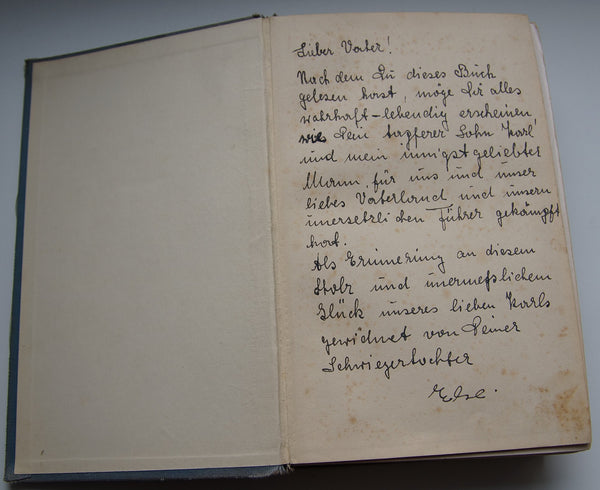 Lieber Vater!
Nach dem Du dieses Buch
gelesen hast, möge Dir alles
wahrhaft-lebendig erscheinen,
wie Dein tapferer Sohn Karl
und mein innigst geliebter
Mann, für uns und unser
liebes Vaterland und unsern
unersetzlichen Führer gekämpft
hat.
Als Erinnerung an diesem
Stolz und unermeßlichem
Glück unseres lieben Karls
gewidmet von Deiner
Schwiegertochter
Else.